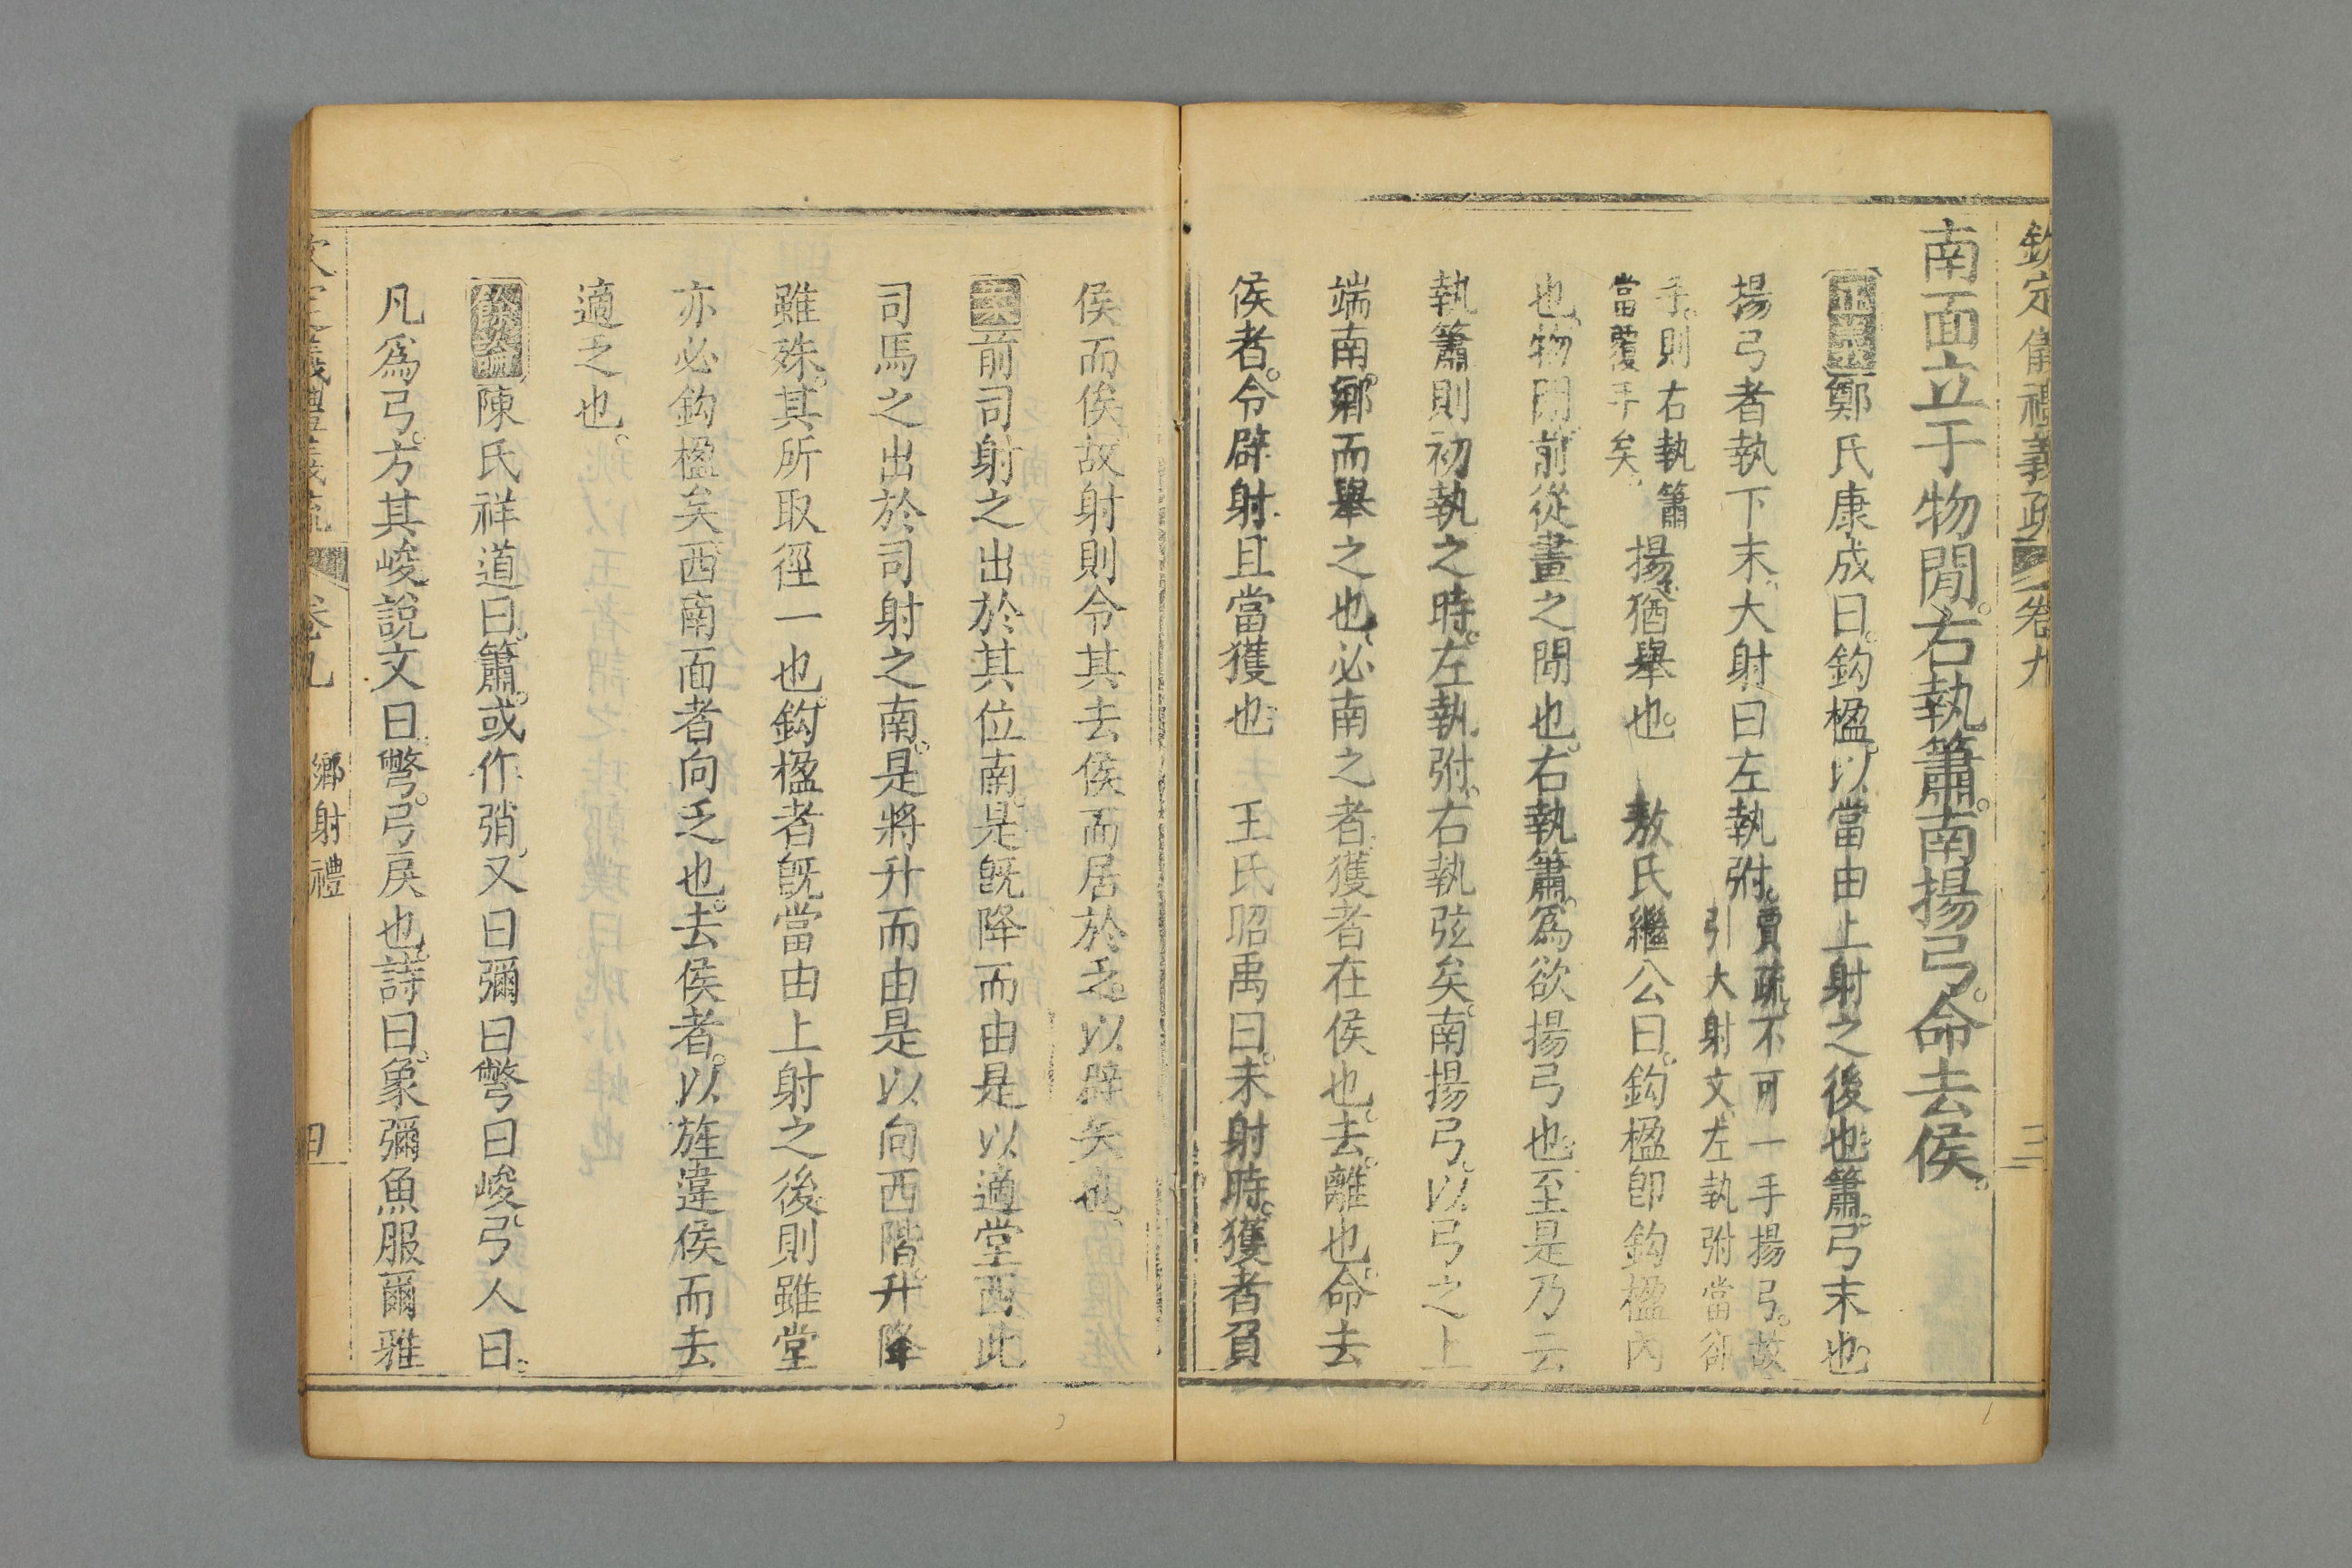 欽定儀禮義疏 卷九 三
南面立于物閒。右執簫。南揚弓。命去侯。
正義鄭氏康成曰。鈎楹。以當由上射之後也。簫。弓末也。
揚弓者執下末。大射曰左執弣。賈疏。不可一手揚弓。故
引大射文。左執弣當卻
手。則右執簫
當覆手矣。揚猶舉也。 敖氏繼公曰。鈎楹卽鈎楹內
也。物閒。前從畫之閒也。右執簫。爲欲揚弓也。至是乃云
執簫則初執之時。左執弣。右執弦矣。南揚弓。以弓之上
端南鄉而舉之也。必南之者。獲者在侯也。去。離也。命去
侯者。令辟射。且當獲也 王氏昭禹曰。未射時。獲者負
侯而俟。故射則令其去侯而居於乏。以辟矢也。
案前司射之出於其位南。是旣降而由是以適堂西。此
司馬之出於司射之南。是將升而由是以向西階。升降
雖殊。其所取徑一也。鈎楹者旣當由上射之後則雖堂
亦必鈎楹矣。西南面者向乏也。去侯者。以旌違侯而去
適乏也。
餘論陳氏祥道曰。簫。或作弰。又曰彌曰彆曰峻。弓人曰。
凡爲弓。方其峻。說文曰。彆。弓戾也。詩曰。象彌魚服。爾雅
卷九 鄉射禮